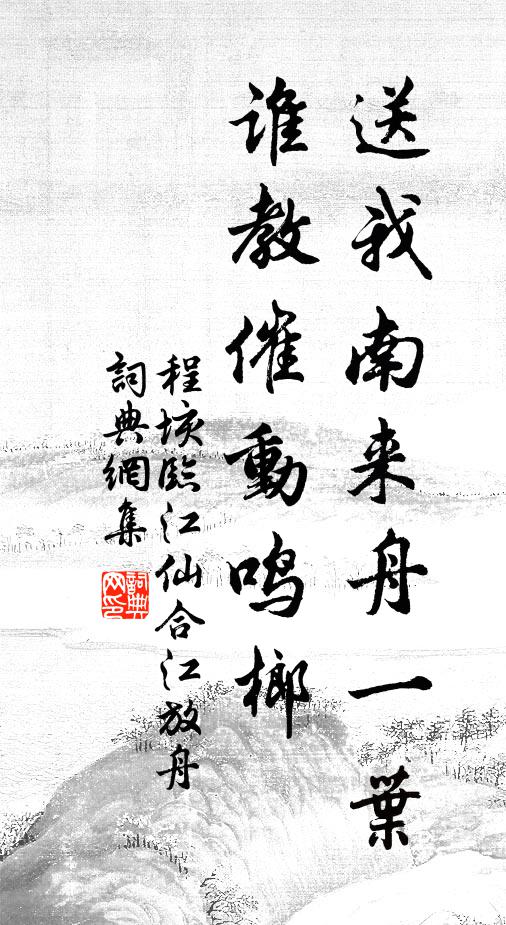 送我南来舟一葉
誰教催動鸣榔
程垓臨江仙合江放舟
詞典網集
詞典网印